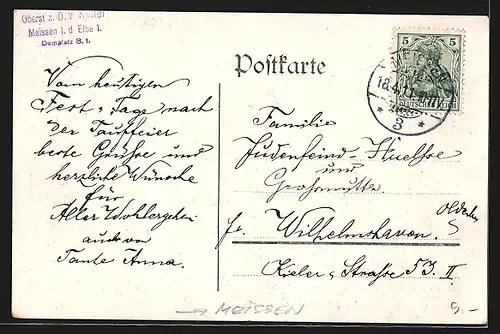 Oberst z. D. v.
Meissen i. d. Elbe 1.
Domplatz 8. I.
Postkarte
5 5
DEUTSCHES REICH
MEISSEN
18.4.11.
* 3 *
Vom heutigen
Fest-Tage nach
der Tauffeier
beste Grüsse und
herzliche Wünsche
für
Aller Wohlergehen
auch von
Tante Anna.
Familie
Judenfeind-Huelsse
und
Grossmutter
Wilhelmshaven.
Kieler-Strasse 53. II.
→ MEISSEN
5.-